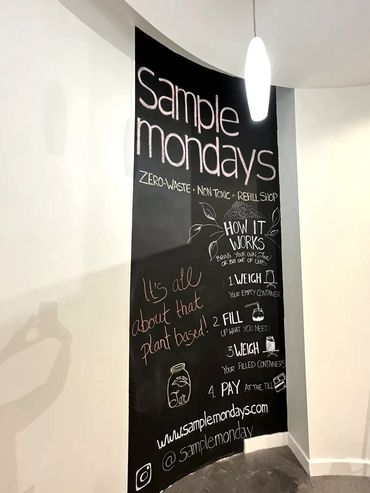 sample
mondays
ZERO-WASTE - NON TOXIC - REFILL SHOP
HOW IT
WORKS
BRING YOUR OWN Jar
OR BUY ONE OF OURS
1. WEIGH
YOUR EMPTY CONTAINER
2. FILL
UP WHAT YOU NEED
3. WEIGH
YOUR FILLED CONTAINERS
4. PAY AT THE TILL
It's all
about that
plant based!
Jar
www.samplemondays.com
@samplemonday